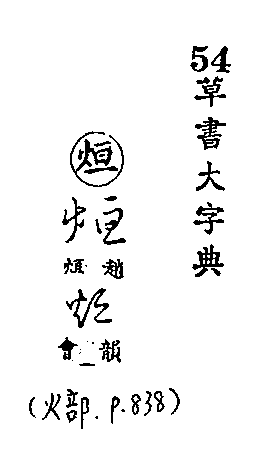 54
草書大字典
烜
烜
趙
烜
韻會
(火部.p.838)